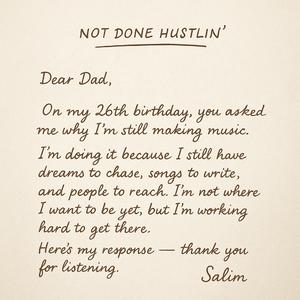 NOT DONE HUSTLIN'
Dear Dad,
On my 26th birthday, you asked
me why I'm still making music.
I'm doing it because I still have
dreams to chase, songs to write,
and people to reach. I'm not where
I want to be yet, but I'm working
hard to get there.
Here's my response — thank you
for listening.
Salim